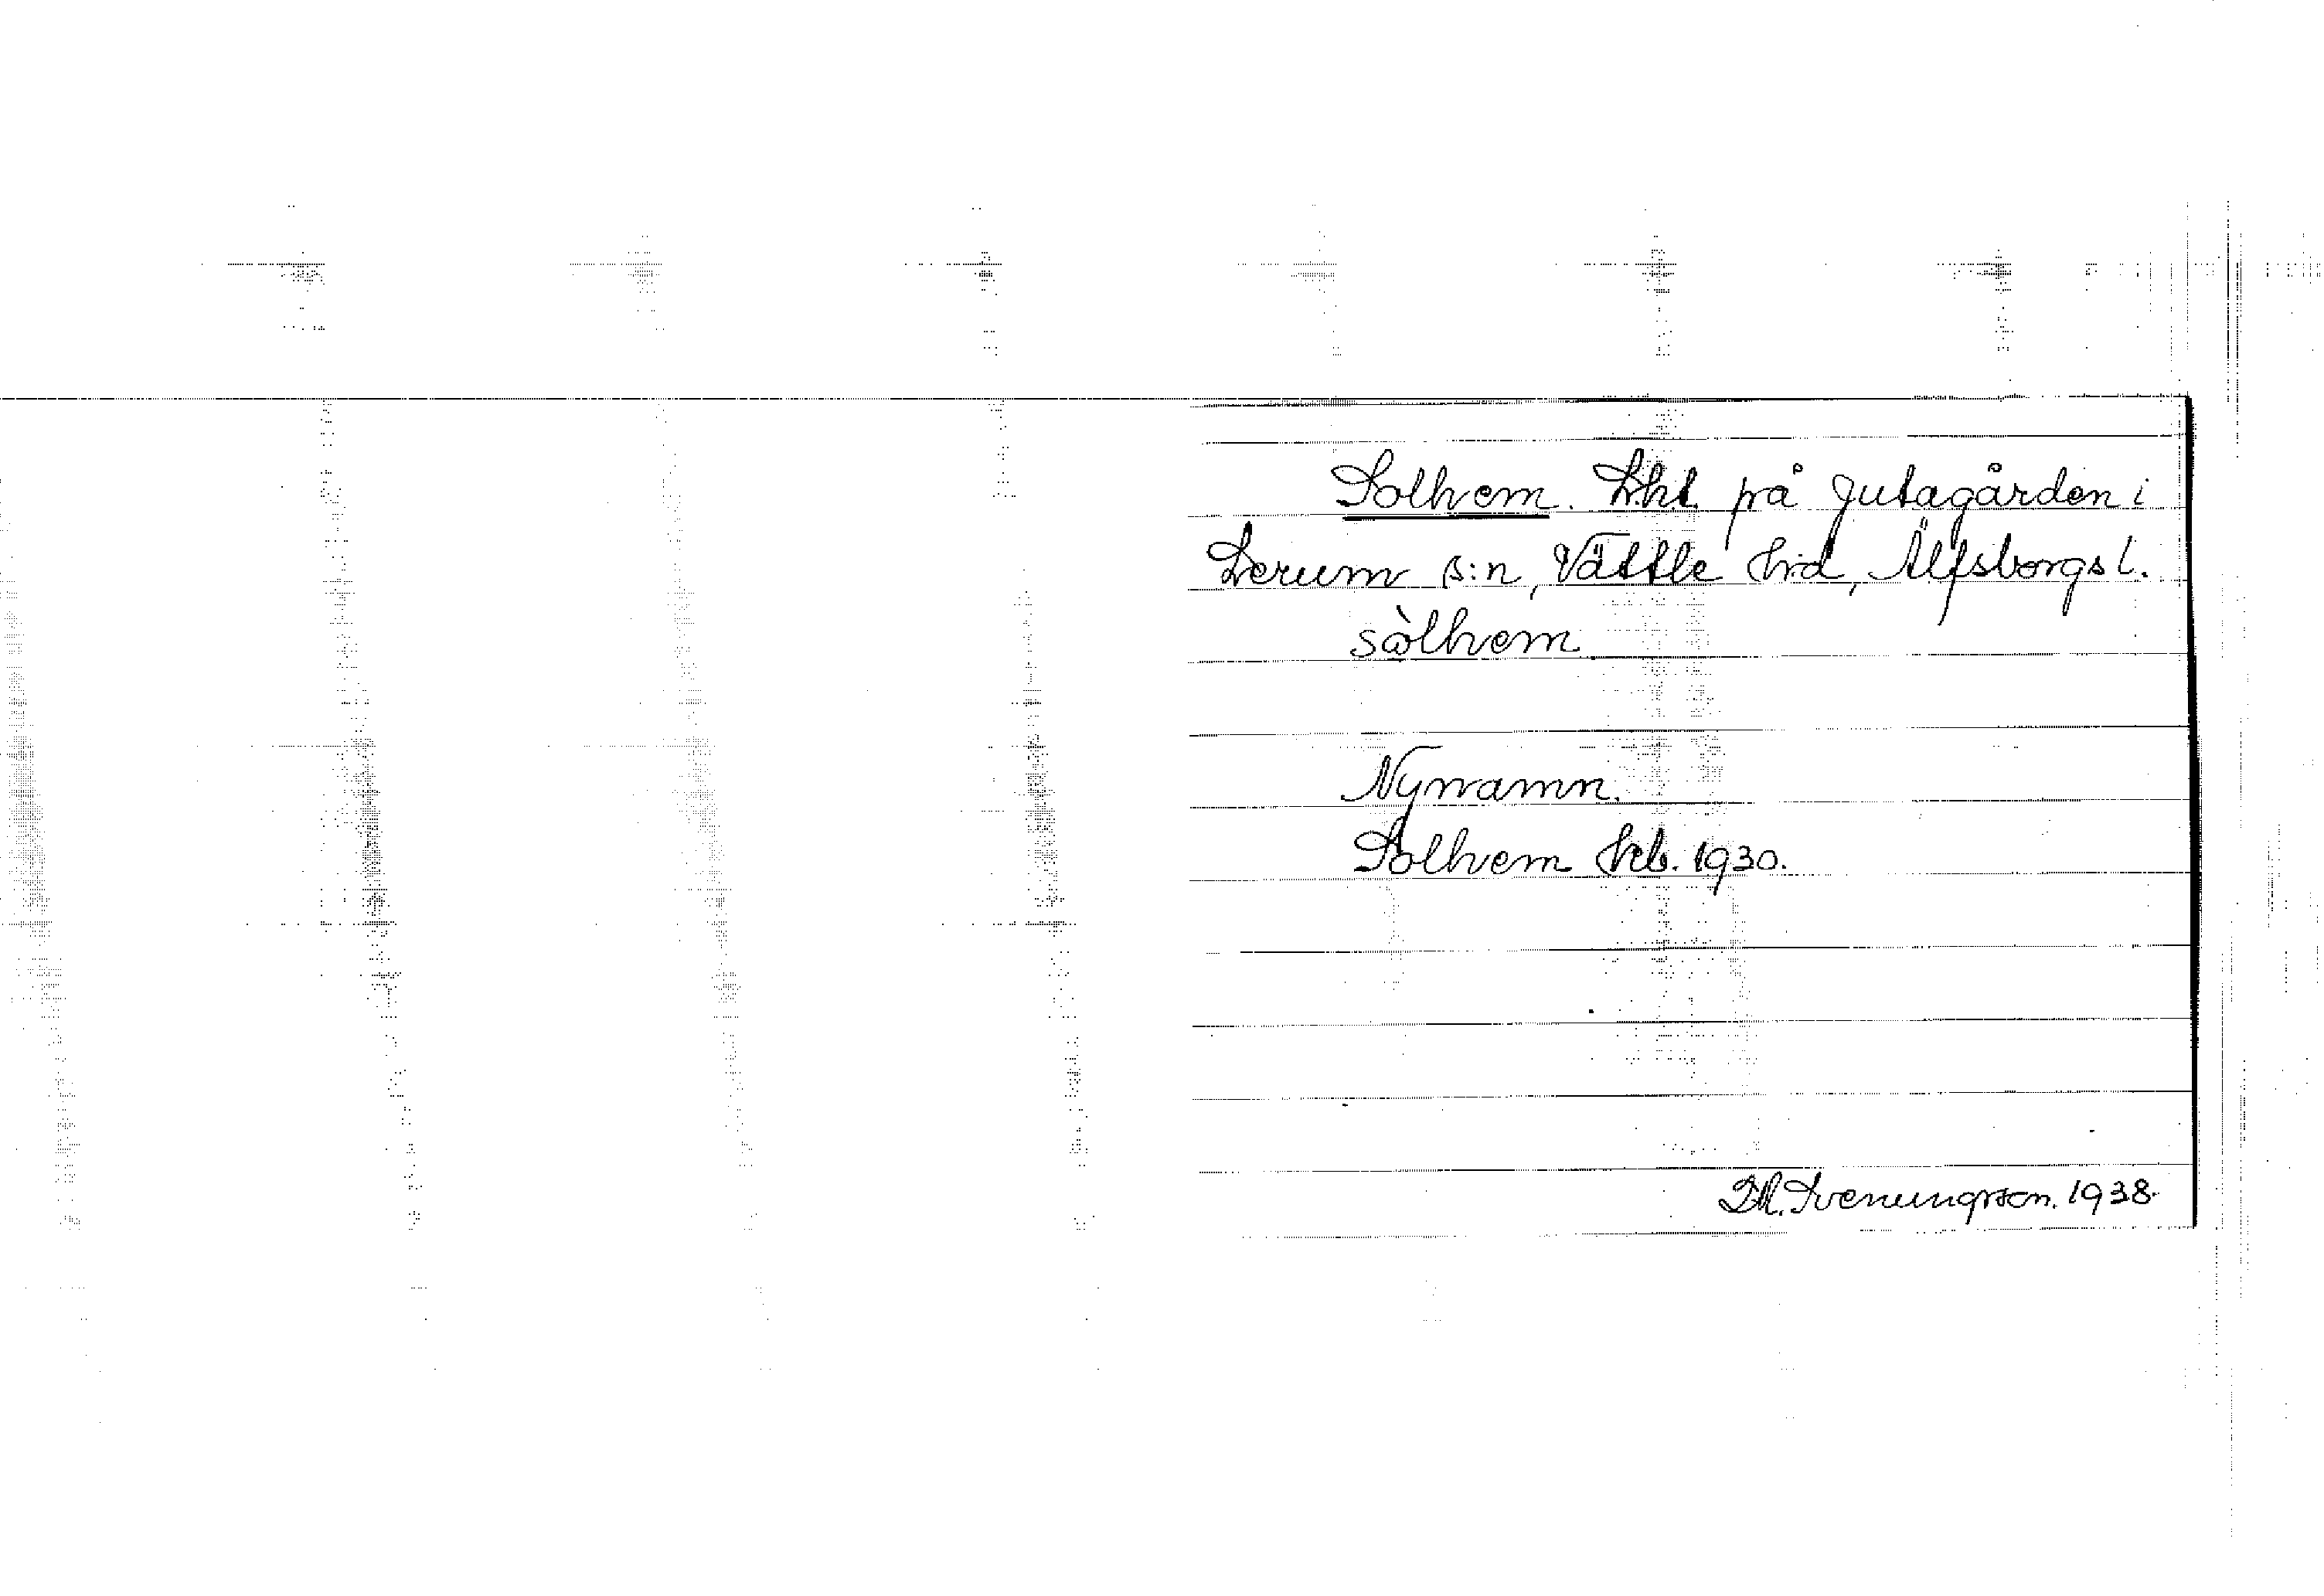 Solhem. Lht. på Jutagården i
Lerum s:n, Vättle hd, Älfsborgs l.
sòlhem
Nynamn.
Solhem hfb. 1930.
D.H. Svenungsson. 1938.